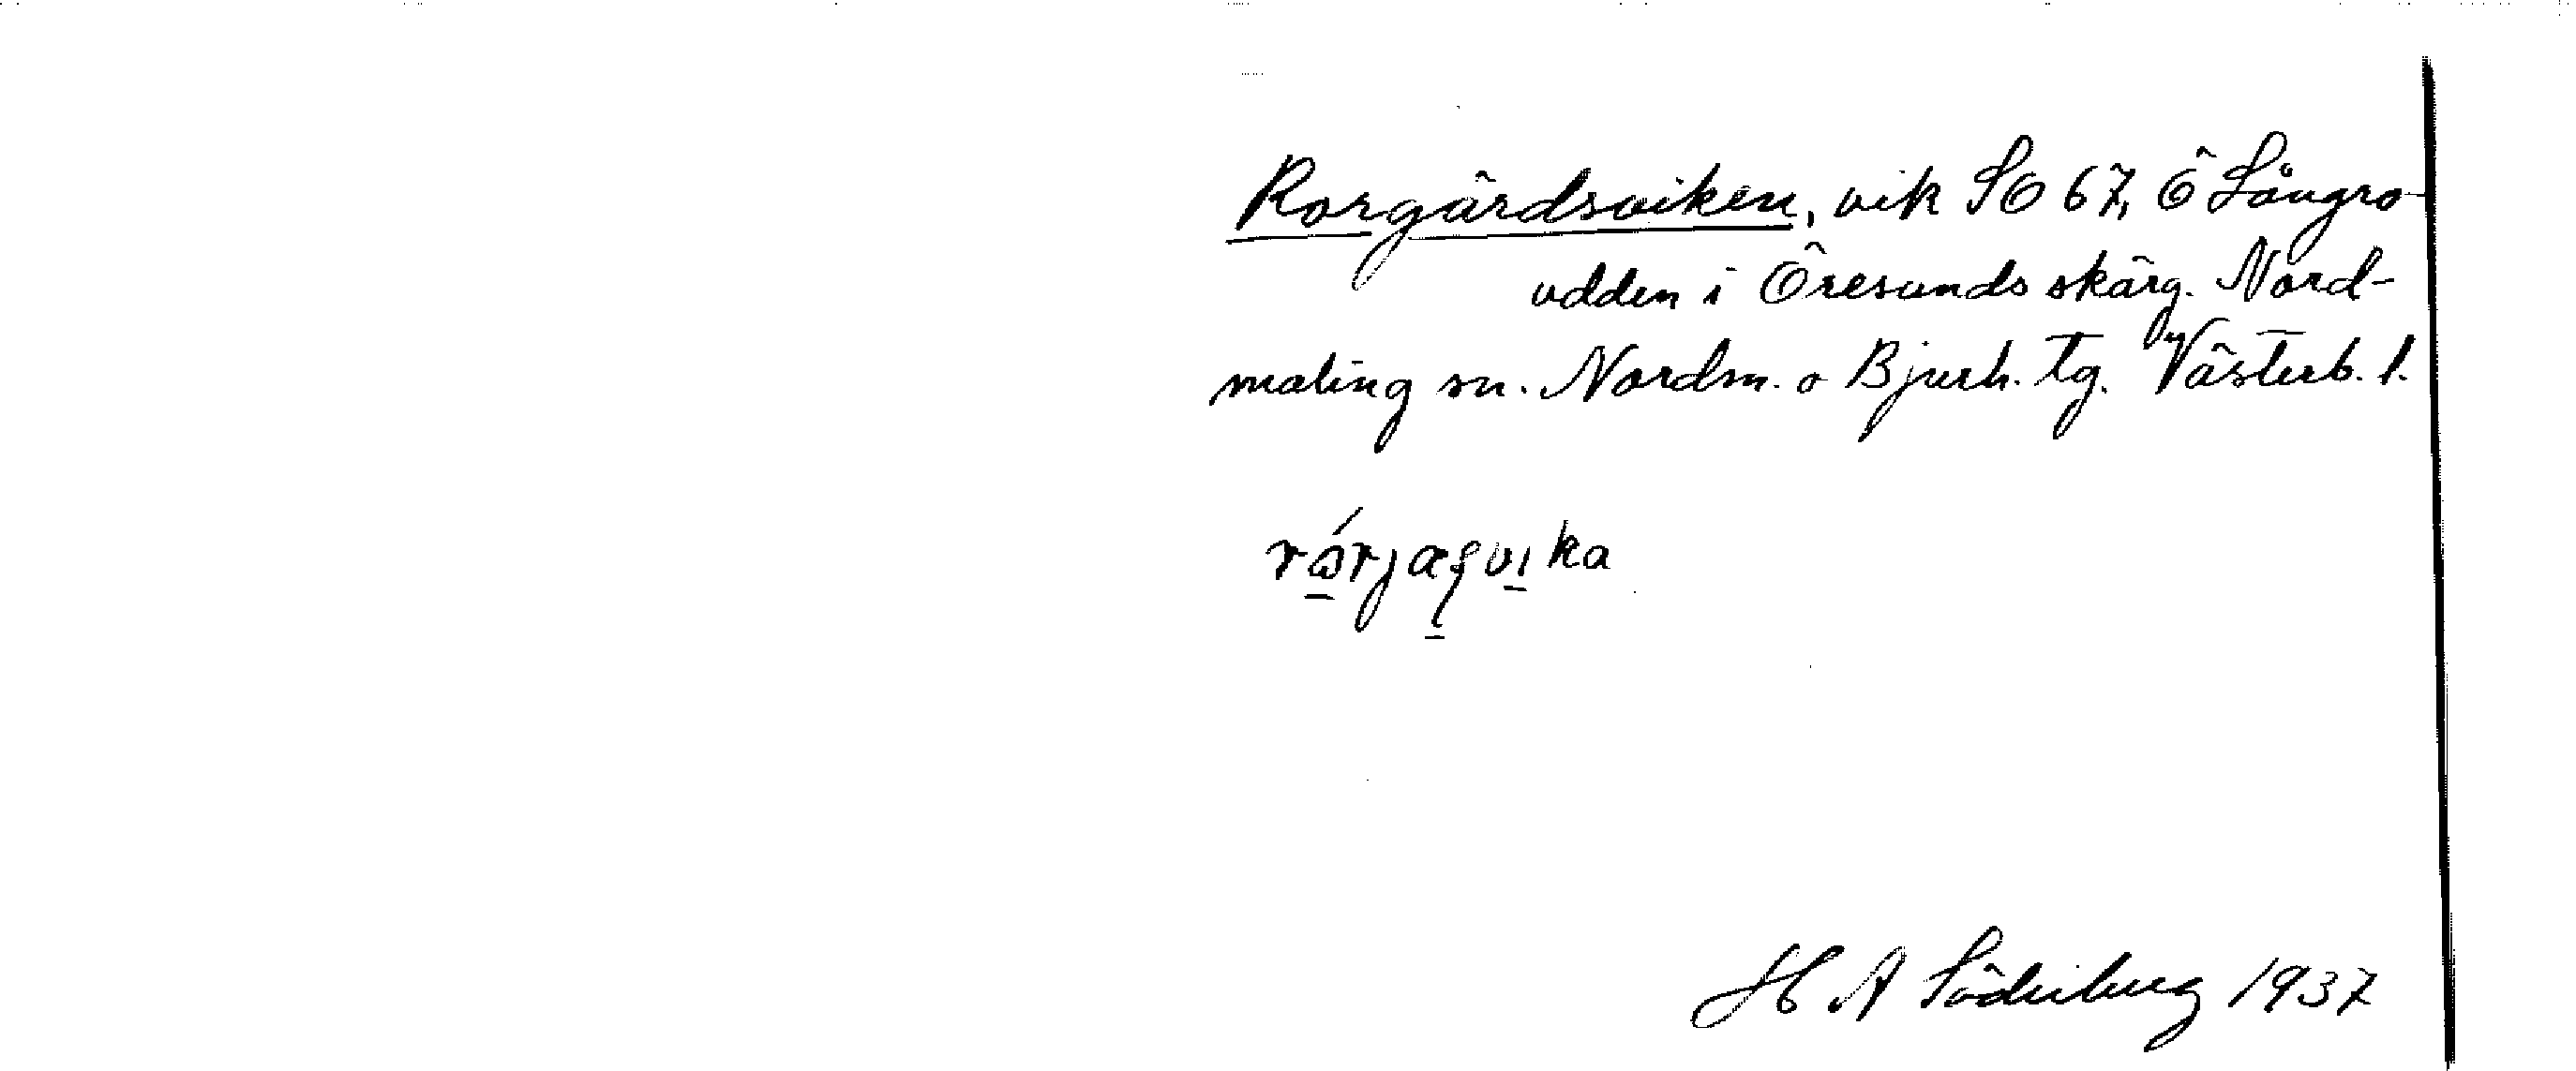 Rorgårdsviken, vik SO 67, Ö Långro-
udden i Öresunds skärg. Nord-
maling sn. Nordm. o Bjurh. tg. Västerb. l.
H A Söderberg 1937